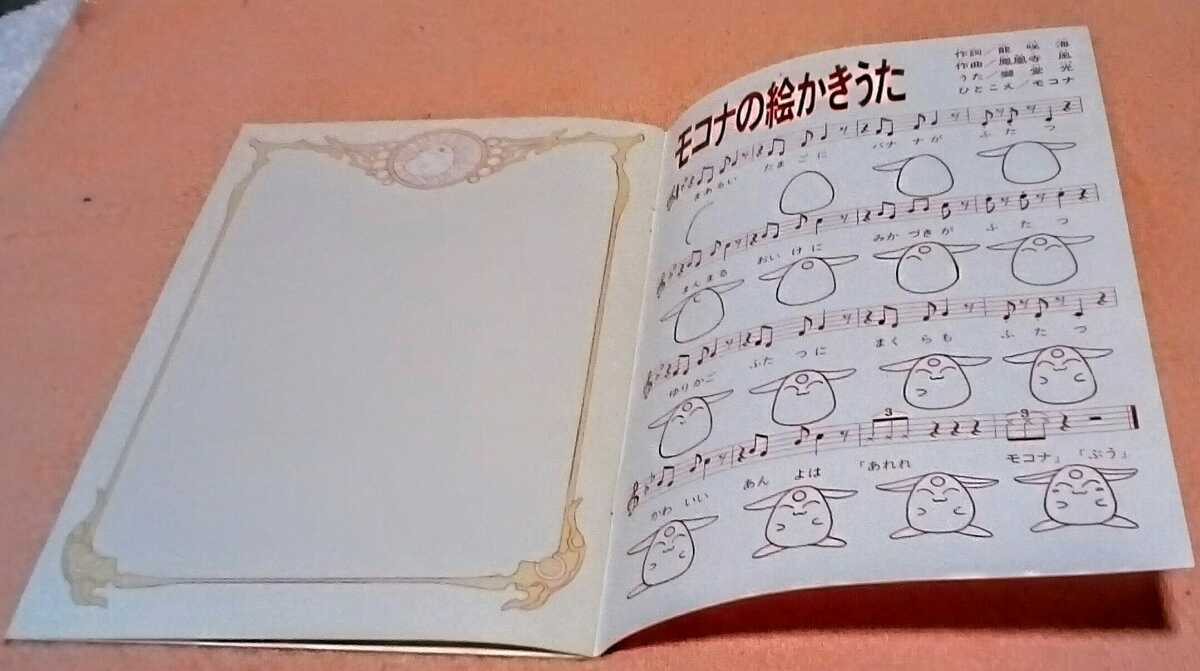 モコナの絵かきうた
作詞／龍咲海
作曲／鳳凰寺風
うた／獅堂光
ひとこえ／モコナ
まあるい たまごに バナナが ふたつ
まんまる おいけに みかづきが ふたつ
ゆりかご ふたつに まくらも ふたつ
かわいい あんよは 「あれれ モコナ」「ぷう」
3 3